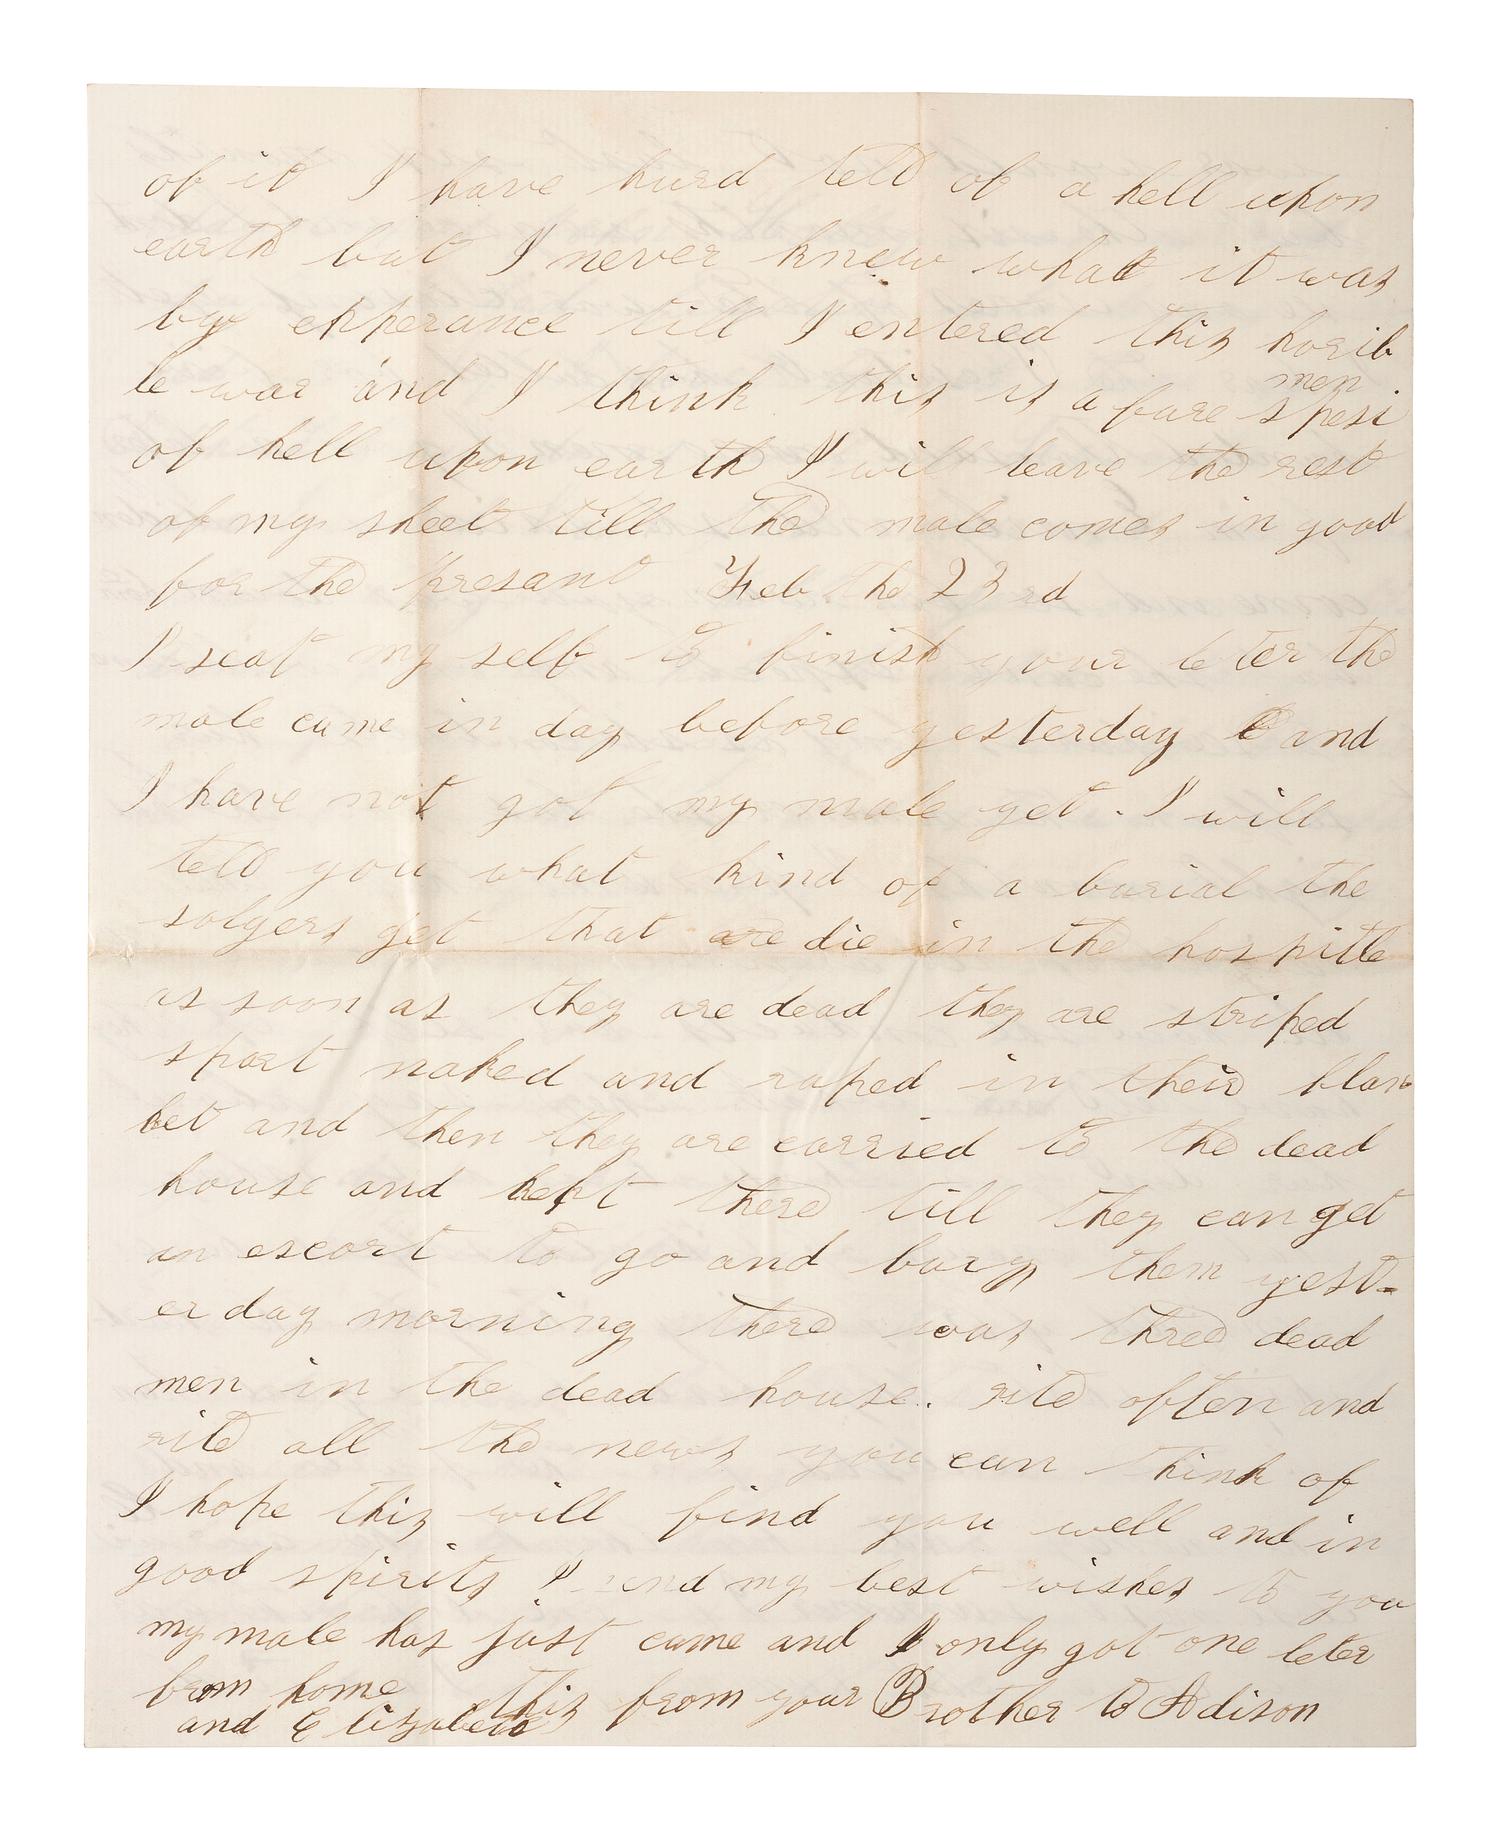 of it I have hurd tell of a hell upon
earth but I never knew what it was
by epperance till I entered this horib
le war and I think this is a fare spesi
men
of hell upon earth I will leave the rest
of my sheet till the male comes in good
for the presant Feb the 23rd
I seat my self to finish your leter the
male came in day before yesterday and
I have not got my male yet. I will
tell you what kind of a burial the
solgers get that are die in the hospitle
as soon as they are dead they are striped
spart naked and raped in their blan
ket and then they are carried to the dead
house and kept there till they can get
an escort to go and bury them yest-
erday morning there was three dead
men in the dead house. rite often and
rite all the news you can think of
I hope this will find you well and in
good spirits I send my best wishes to you
my male has just came and I only got one leter
from home this from your Brother to Adison
and Elizabeth